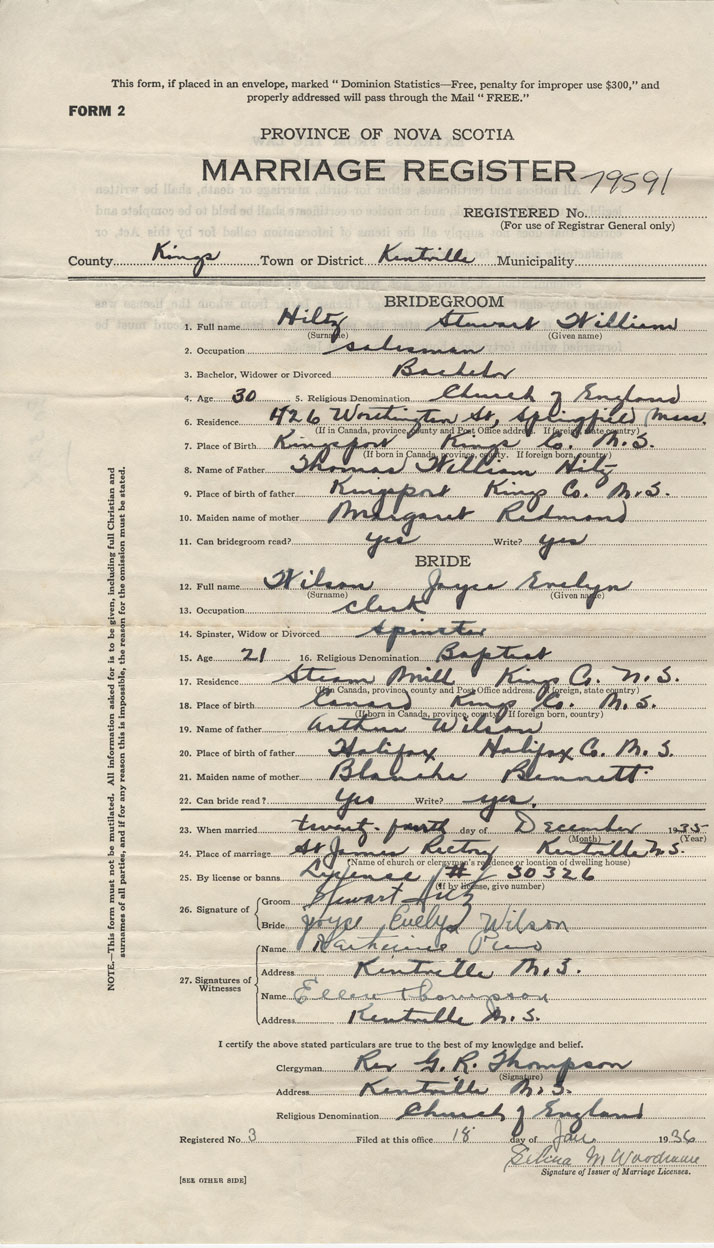 This form, if placed in an envelope, marked " Dominion Statistics—Free, penalty for improper use $300," and
properly addressed will pass through the Mail " FREE."
FORM 2
PROVINCE OF NOVA SCOTIA
MARRIAGE REGISTER
79591
REGISTERED No.
(For use of Registrar General only)
County Kings Town or District Kentville Municipality
BRIDEGROOM
1. Full name Hiltz Stewart William
(Surname) (Given name)
2. Occupation salesman
3. Bachelor, Widower or Divorced Bachelor
4. Age 30 5. Religious Denomination Church of England
6. Residence 426 Worthington St, Springfield Mass.
(If in Canada, province, county and Post Office address. If foreign, state country)
7. Place of Birth Kingsport Kings Co. N.S.
(If born in Canada, province, county. If foreign born, country)
8. Name of Father Thomas William Hiltz
9. Place of birth of father Kingsport Kings Co. N.S.
10. Maiden name of mother Margaret Redmond
11. Can bridegroom read? yes Write? yes
BRIDE
12. Full name Wilson Joyce Evelyn
(Surname) (Given name)
13. Occupation clerk
14. Spinster, Widow or Divorced Spinster
15. Age 21 16. Religious Denomination Baptist
17. Residence Steam Mill Kings Co. N.S.
(If in Canada, province, county and Post Office address. If foreign, state country)
18. Place of birth Canard Kings Co. N.S.
(If born in Canada, province, county. If foreign born, country)
19. Name of father Arthur Wilson
20. Place of birth of father Halifax Halifax Co. N.S.
21. Maiden name of mother Blanche Bennett
22. Can bride read? Yes Write? yes.
23. When married twenty-fourth day of December 1935
(Month) (Year)
24. Place of marriage St James Rectory Kentville N.S.
(Name of church or clergyman's residence or location of dwelling house)
25. By license or banns License # 30326
(If by license, give number)
26. Signature of
Groom Stewart Hiltz
Bride Joyce Evelyn Wilson
27. Signatures of Witnesses
Name
Address Kentville N.S.
Name Ellen Thompson
Address Kentville N.S.
I certify the above stated particulars are true to the best of my knowledge and belief.
Clergyman Rev G. R. Thompson
(Signature)
Address Kentville N.S.
Religious Denomination Church of England
Registered No. 3 Filed at this office 18 day of Jan 1936
Selina M Woodman
Signature of Issuer of Marriage Licenses.
[SEE OTHER SIDE]
NOTE.—This form must not be mutilated. All information asked for is to be given, including full Christian and
surnames of all parties, and if for any reason this is impossible, the reason for the omission must be stated.